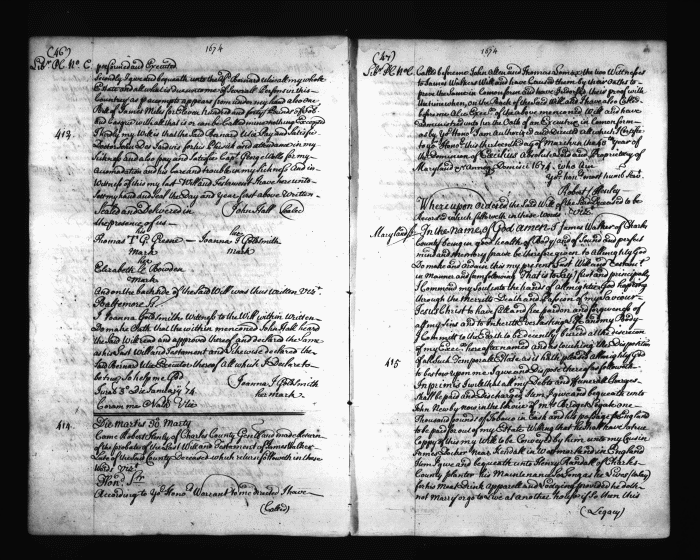 (46)
1674
Lib. Pl. No. C.
preserved and Executed
Secondly I give and bequeath unto the sd Bennard
Estate and all what is due unto me of Severall Persons in this
Country as p accompts appears from under my hand also one
Bill of James Mills for Eleven hundred and forty Pounds of Tob
413.
Thirdly my Will is that the said Bennard Utie Pay and Satisfie
Doctor John Des Jardins for his Phisick and attendance in my
Sickness and also pay and Satisfie Capt George Wells for my
Accomodation and his Care and trouble in my Sickness And in
Witness of this my last Will and Testament I have hereunto
Set my hand and Seal the Day and year first above Written
Sealed and delivered in John Hall Sealed
the presence of us
his her
Thomas T G Greene — Joanna I Goldsmith
Mark mark
her
Elizabeth E Bowden
mark
And on the backside of the Said Will was thus written Vizt
Baltemore Ss
I Joanna Goldsmith Witness to the Will within Written
Do make Oath that the within menconed John Hall heard
the Said Will read and approved thereof and declared the Same
as his last Will and Testament and Likewise declared the
said Bennard Utie Executor thereof All which I declare to
be true So help me God
Joanna I Goldsmith
her mark
Jurat 3o die January 74
Coram me Nath Utie
414.
Die Martis 30 Marty
Came Robert Henly of Charles County Gent and made Return
of his probate of the Last Will and Testament of James Walker
Late of the said County Deceased which return followeth in these
Words Vizt
Hond Sr
According to Yor Honors Warrant to me directed I have
(Called)
(47)
1674
Lib. Pl. No. C.
Called before me John Allen and Thomas Lomax the two Witnesses
to James Walkers Will and have Caused them by their Oaths to
prove the Same in Common form and have Indorsed their proof with
the time when, on the Back of the Said Will and I have also Called
before me the Execr of the above menconed Will and have
Administred unto the Oath of an Executrix in Common form
as by Yor Honor I am Authorized and Directed All which I Certifie
to Yor Honor this thirteenth day of March in the 43th year of
the Dominion of Cecilius Absolute Lord and Proprietary of
Maryland & Annoq Domini 1674, who am
Yor Honrs most humble Servt
Robert Henley
Where upon ordered the Said Will of the Said Deceased to be
Recorded which followeth in these words Vizt
Maryland ss
In the name of God amen I James Walker of Charles
County being in good health of Body and of Sound and perfect
mind and memory praise be therefore given to Allmighty God
Do make and ordain this my present Last Will and Testamt
in Manner and form following That is to Say first and principaly
I Commend my Soul into the hands of almighty God hopeing
through the Meritts Death and Passion of my Saviour
Jesus Christ to have full and free pardon and forgiveness of
all my Sins and to Inherit Everlasting Life and my Body
I Committ to the Earth to be decently Buried at the discretion
of my Execr hereafter named and as touching the Disposition
415
of all Such Temporall Estate as it hath pleased Allmighty God
to bestow upon me I give and Dispose thereof as followeth
Imprimis I will that all my Debts and Funerall Charges
shall be paid and Discharged Item I give and bequeath unto
John Newby now in the Service of Mr Hodges Legate one
Thousand pounds of Tobacco in Cask and his passage to England
to be paid for out of my Estate Willing that he Shall have a true
Coppy of this my Will to be Conveyed by him unto my Cousin
James Larker Near Kendall in Westmorland in England
Item I give and bequeath unto Henry Randall of Charles
County planter his Maintenance So Long as he Lives
for his Meat Drink Apparell and Lodgeing provided he doth
not Marry or go to Live at another house if So then this
(Legacy)